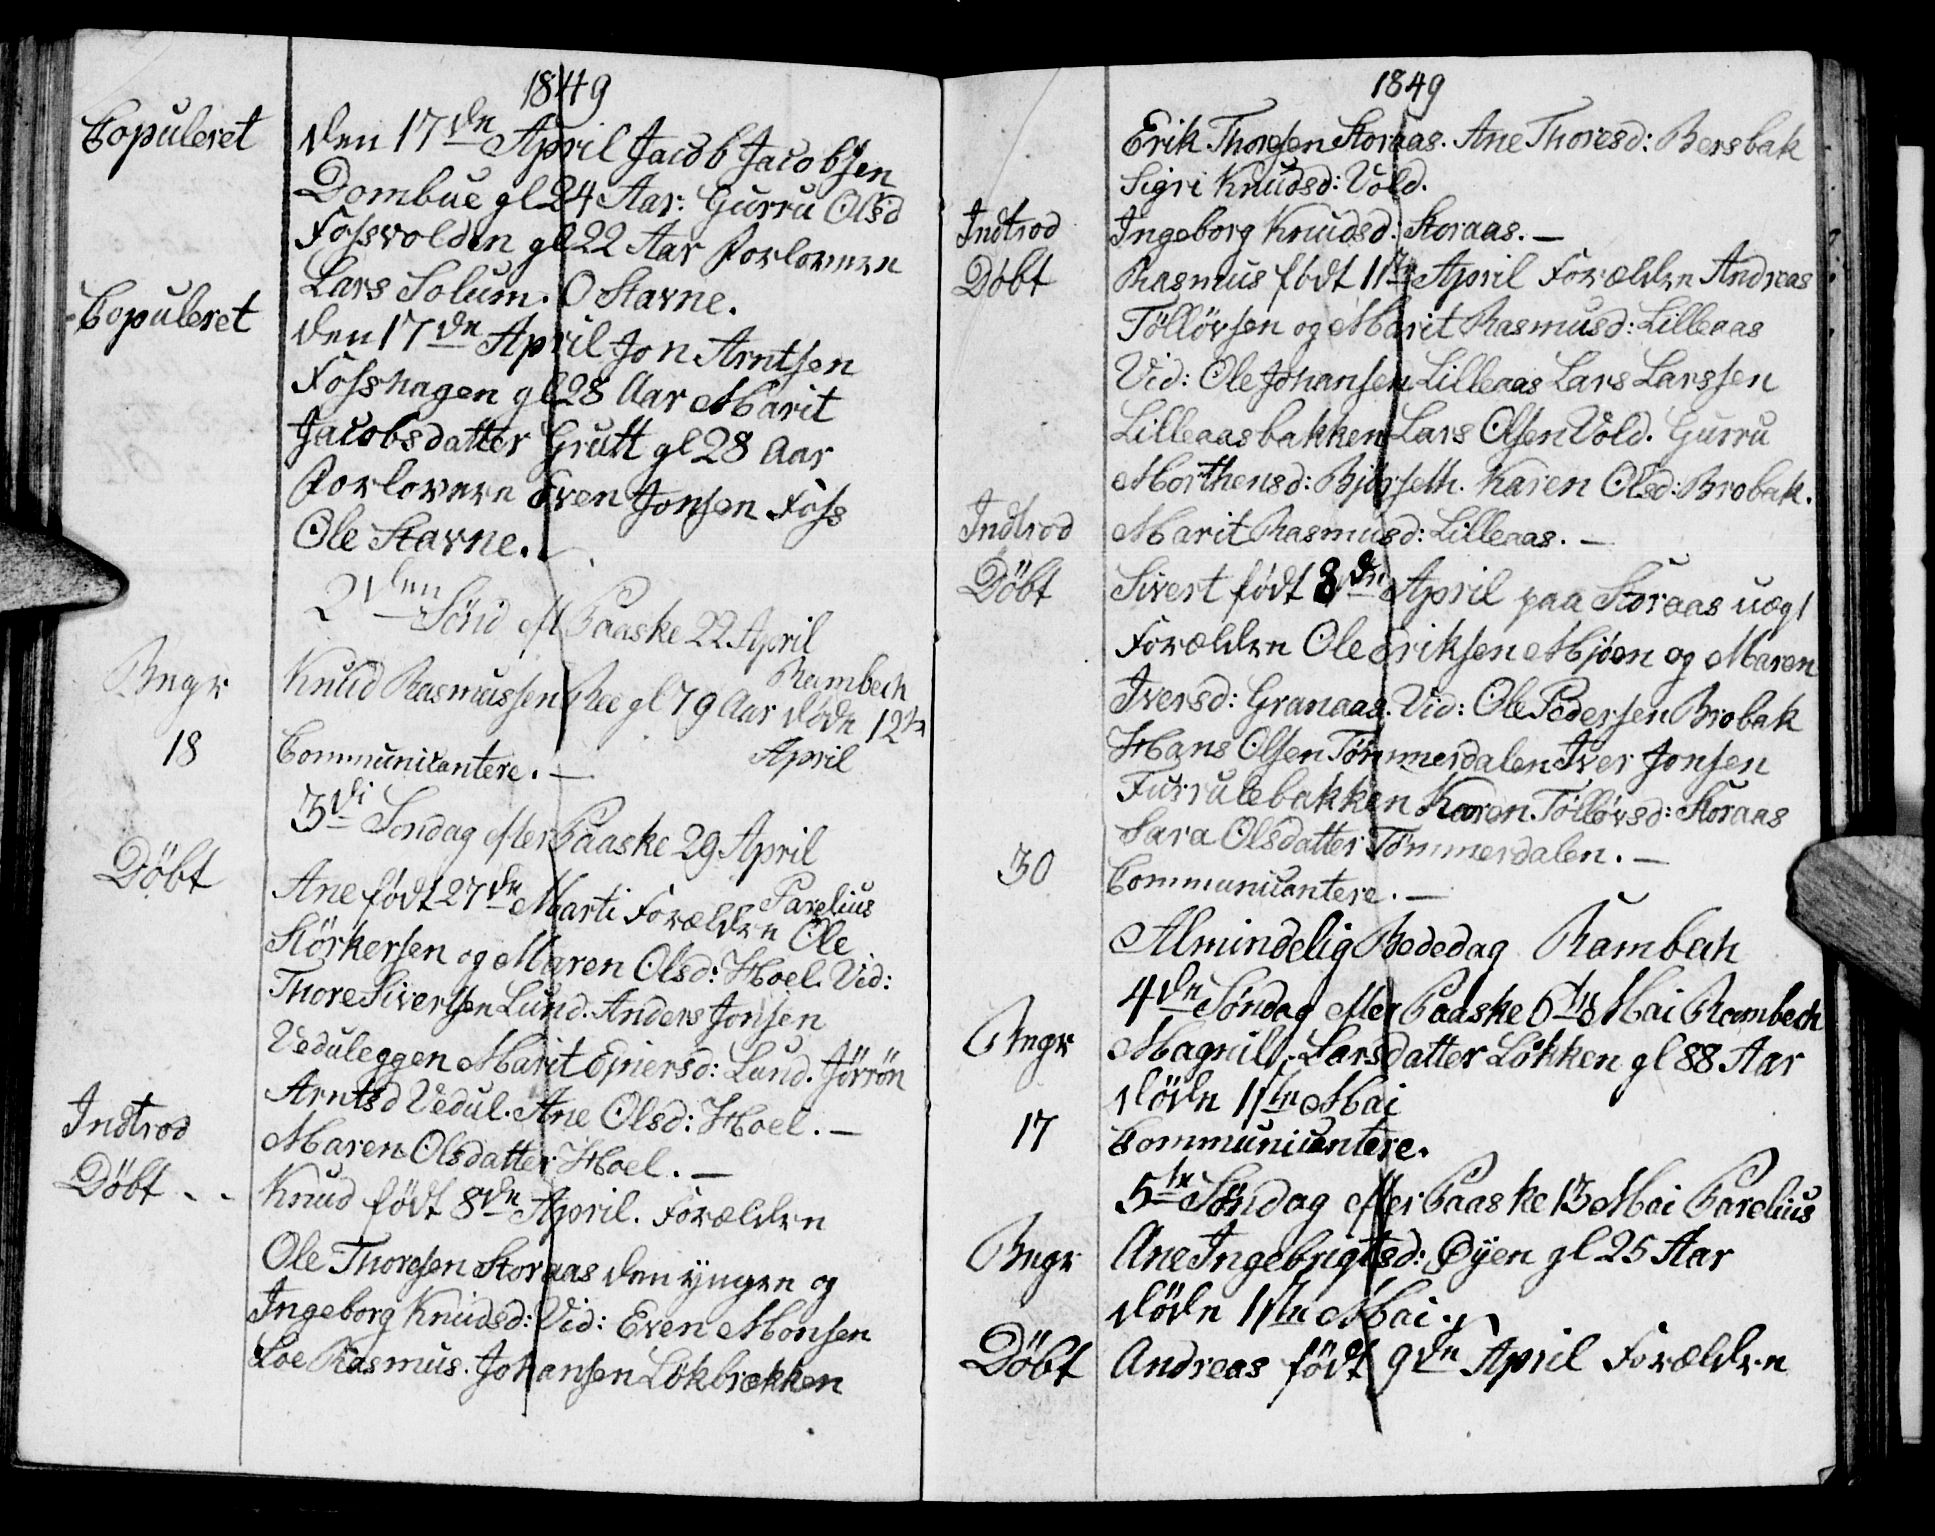 1849
Copuleret den 17de April Jacob Jacobsen
Dombue gl 24 Aar: Gurru Olsd
Fossvolden gl 22 Aar Forlovere
Lars Solum. O Stavne.
Copuleret den 17de April Jon Arntsen
Fosshagen gl 28 Aar Marit
Jacobsdatter Grutt gl 28 Aar
Forlovere Even Jonsen Foss
Ole Stavne.
2den Sönd eft Paaske 22 April
Rambech
Begr Knud Rasmussen Ree gl 79 Aar døde 12te
April
18 Communicantere. —
3di Søndag efter Paaske 29 April
Parelius
Döbt Ane født 27de Marti Forældre Ole
Störkersen og Maren Olsd: Hoel. Vid:
Thore Sivertsen Lund. Anders Jonsen
Veduleggen Marit Ejniersd: Lund. Jörrön
Arntsd Vedul. Ane Olsd: Hoel. —
Indtrod Maren Olsdatter Hoel. —
Döbt - - Knud født 8de April. Forældre
Ole Thoresen Storaas den yngre og
Ingeborg Knudsd: Vid: Even Monsen
Loe Rasmus. Johansen Lökbrækken
1849
Erik Thoresen Storaas. Ane Thoresd: Bersbak
Sigri Knudsd: Vold.
Indtrod Ingeborg Knudsd: Storaas. —
Döbt Rasmus født 11te April Forældre Andreas
Töllövsen og Marit Rasmusd: Lilleaas
Vid: Ole Johansen Lilleaas Lars Larssen
Lilleaasbakken Lars Olsen Vold. Gurru
Morthensd: Bjørseth. Karen Olsd: Brobak.
Indtrod Marit Rasmusd: Lilleaas. —
Döbt Sivert født 8de April paa Storaas uægt
Forældre Ole Eriksen Mjøen og Maren
Iversd: Granaas. Vid: Ole Pedersen Brobak
Hans Olsen Tömmerdalen Iver Jonsen
Furrulebakken Karen. Töllövsd: Storaas
Sara Olsdatter Tömmerdalen. —
30 Communicantere. —
Almindelig Bededag Rambech
4de Søndag efter Paaske 6te Mai Rambech
Begr Magnil. Larsdatter Løkken gl 88 Aar
døde 1ste Mai
17 Communicantere.
5te Søndag efter Paaske 13 Mai Parelius
Begr Ane Ingebrigtsd: Øyen gl 25 Aar
døde 1ste Mai.
Döbt Andreas født 9de April Forældre